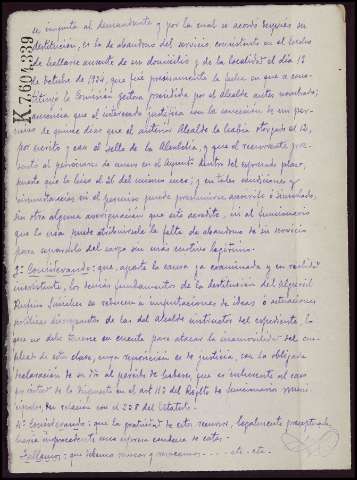 se imputa al demandante y por la cual se acordó después su
destitución, es la de abandono del servicio consistente en el hecho
de hallarse ausente de su domicilio y de la localidad el día 18
de Octubre de 1934, que fué precisamente la fecha en que se cons-
tituyó la Comisión gestora presidida por el alcalde antes nombrado;
ausencia que el interesado justifica con la concesión de un per-
miso de quince días que el anterior Alcalde le había otorgado el 12,
por escrito y con el sello de la Alcaldía, y que el recurrente pre-
sentó al posesionarse de nuevo en el dentro del expresado plazo,
puesto que lo hizo el 26 del mismo mes; y en tales condiciones y
circunstancias ni el permiso puede presumirse amañado o simulado,
sin otra alguna averiguación que esto acredite, ni al funcionario
que lo usa puede atribuírsele la falta de abandono de su servicio
para separarlo del cargo sin más motivo legítimo.
3º Considerando: que, aparte la causa ya examinada y en realidad
inexistente, los demás fundamentos de la destitución del Alguacil
Rufino Sánchez se reducen a imputaciones de ideas o actuaciones
políticas discrepantes de las del Alcalde instructor del expediente, lo
que no debe tenerse en cuenta para atacar la inamovilidad del em-
pleado de esta clase, cuya reposición es de justicia, con la obligada
declaración de su dcho al percibo de haberes, que es inherente al caso
por virtud de lo dispuesto en el art 113 del Regltº de funcionarios muni-
cipales, en relación con el 238 del Estatuto.
4º Considerando: que la gratuidad de este recurso, legalmente preceptuada,
hacía improcedente una expresa condena de costas.
Fallamos: que debemos revocar y revocamos - - - - etc - etc -
K.7.604.339